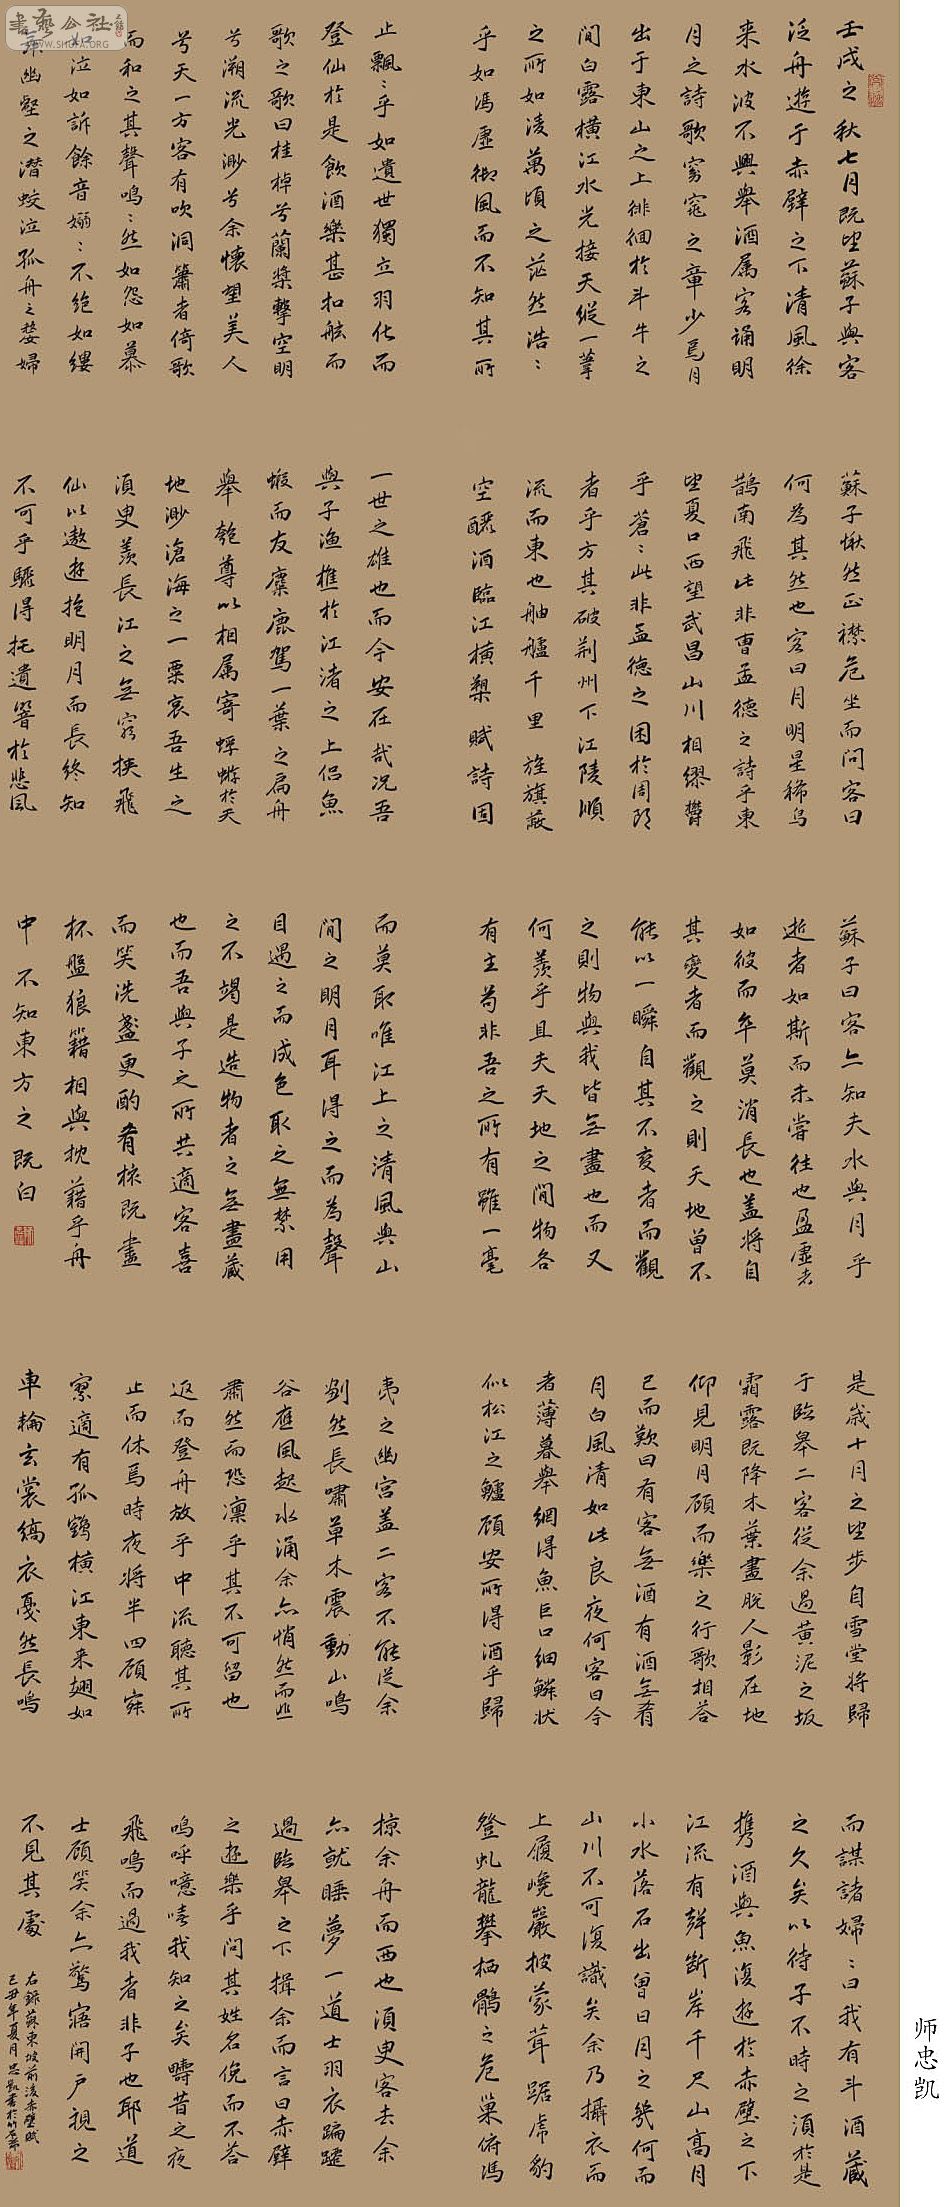 壬戌之秋七月既望蘇子與客
泛舟遊于赤壁之下清風徐
来水波不興舉酒属客誦明
月之詩歌窈窕之章少焉月
出于東山之上徘徊於斗牛之
間白露橫江水光接天縱一葦
之所如淩萬頃之茫然浩〻
乎如馮虛御風而不知其所
止飄〻乎如遺世獨立羽化而
登仙於是飲酒樂甚扣舷而
歌之歌曰桂棹兮蘭槳擊空明
兮溯流光渺兮余懷望美人
兮天一方客有吹洞簫者倚歌
而和之其聲嗚〻然如怨如慕
如泣如訴餘音嫋〻不絕如縷
舞幽壑之潛蛟泣孤舟之嫠婦
蘇子愀然正襟危坐而問客曰
何為其然也客曰月明星稀烏
鵲南飛此非曹孟德之詩乎東
望夏口西望武昌山川相繆鬱
乎蒼〻此非孟德之困於周郎
者乎方其破荆州下江陵順
流而東也舳艫千里旌旗蔽
空釃酒臨江橫槊賦詩固
一世之雄也而今安在哉况吾
與子漁樵於江渚之上侶魚
蝦而友麋鹿駕一葉之扁舟
舉匏尊以相属寄蜉蝣於天
地渺滄海之一粟哀吾生之
須臾羨長江之無窮挾飛
仙以遨遊抱明月而長終知
不可乎驟得托遺響於悲風
蘇子曰客亦知夫水與月乎
逝者如斯而未嘗往也盈虛者
如彼而卒莫消長也盖將自
其變者而觀之則天地曾不
能以一瞬自其不变者而觀
之則物與我皆無盡也而又
何羨乎且夫天地之間物各
有主苟非吾之所有雖一毫
而莫取唯江上之清風與山
間之明月耳得之而為聲
目遇之而成色取之無禁用
之不竭是造物者之無盡藏
也而吾與子之所共適客喜
而笑洗盞更酌肴核既盡
杯盤狼籍相與枕藉乎舟
中不知東方之既白
是歲十月之望步自雪堂將歸
于臨皋二客從余過黃泥之坂
霜露既降木葉盡脫人影在地
仰見明月顧而樂之行歌相答
已而歎曰有客無酒有酒無肴
月白風清如此良夜何客曰今
者薄暮舉網得魚巨口細鱗狀
似松江之鱸顧安所得酒乎歸
而謀諸婦〻曰我有斗酒藏
之久矣以待子不時之須於是
攜酒與魚復遊於赤壁之下
江流有聲斷岸千尺山高月
小水落石出曾日月之幾何而
山川不可復識矣余乃攝衣而
上履巉巖披蒙茸踞虎豹
登虬龍攀栖鶻之危巢俯馮
夷之幽宫盖二客不能從余
劃然長嘯草木震動山鳴
谷應風起水涌余亦悄然而悲
肅然而恐凜乎其不可留也
返而登舟放乎中流聽其所
止而休焉時夜將半四顧寂
寥適有孤鶴橫江東来翅如
車輪玄裳縞衣戛然長鳴
掠余舟而西也須臾客去余
亦就睡夢一道士羽衣蹁躚
過臨皋之下揖余而言曰赤壁
之遊樂乎問其姓名俛而不答
嗚呼噫嘻我知之矣疇昔之夜
飛鳴而過我者非子也耶道
士顧笑余亦驚寤開户視之
不見其處
右錄蘇東坡前後赤壁賦
己丑年夏月忠凱書於
师忠凯
書藝公社
WWW.SHUFA.ORG